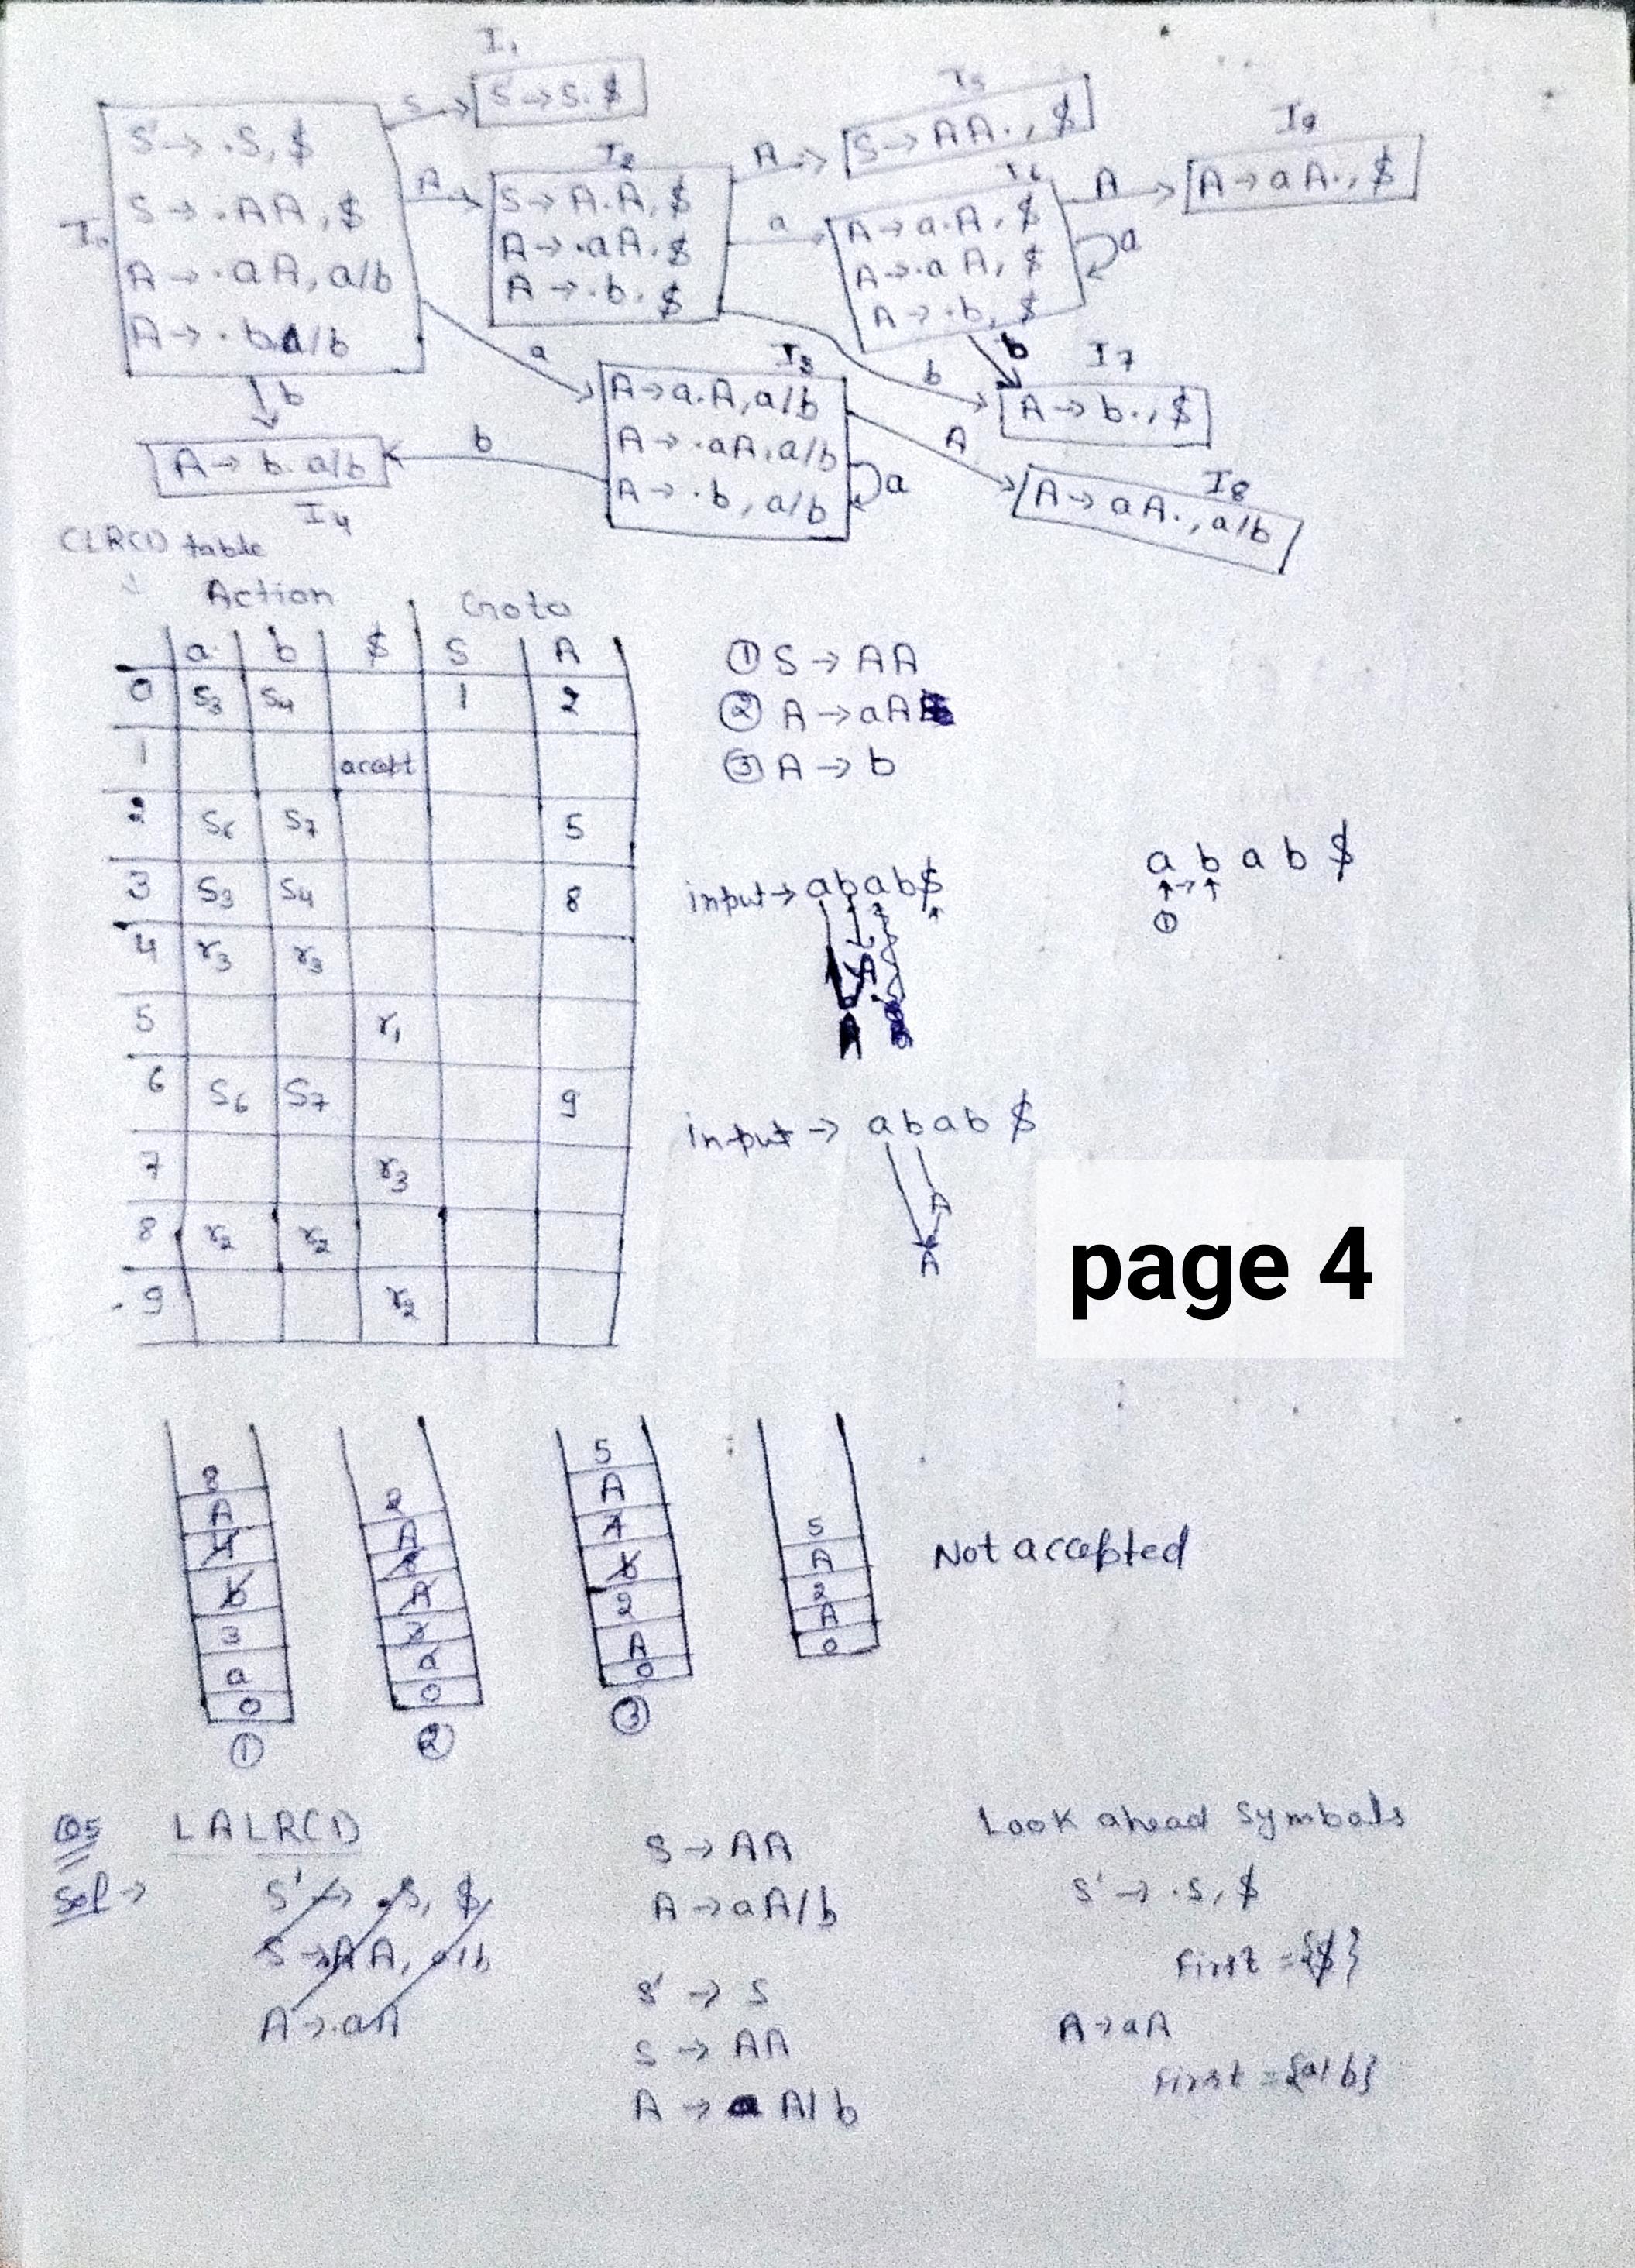 I₁
S' → S. $
I₀
S' → .S, $
S → .AA, $
A → .aA, a/b
A → .b a/b
S
A
I₂
S → A.A, $
A → .aA, $
A → .b, $
A
I₅
S → AA., $
a
I₆
A → a.A, $
A → .aA, $
A → .b, $
A
a
I₉
A → aA., $
b
b
I₇
A → b., $
b
a
I₃
A → a.A, a/b
A → .aA, a/b
A → .b, a/b
a
b
A
A → b. a/b
I₄
I₈
A → aA., a/b
CLRCD table
Action Goto
a b $ S A
0 S₃ S₄ 1 2
1 accept
2 S₆ S₇ 5
3 S₃ S₄ 8
4 r₃ r₃
5 r₁
6 S₆ S₇ 9
7 r₃
8 r₂ r₂
9 r₂
① S → AA
② A → aA
③ A → b
input → abab$
A
A
a b a b $
①
input → abab $
A
A
page 4
8
A
4
b
3
a
0
①
2
A
8
A
3
a
0
②
5
A
7
b
2
A
0
③
5
A
2
A
0
Not accepted
Q5 LALRCD
Sol →
S' → .S, $
S → AA, a/b
A → .aA
S → AA
A → aA/b
S' → S
S → AA
A → aA/b
Look ahead symbols
S' → .S, $
First = {$}
A → aA
First = {a/b}